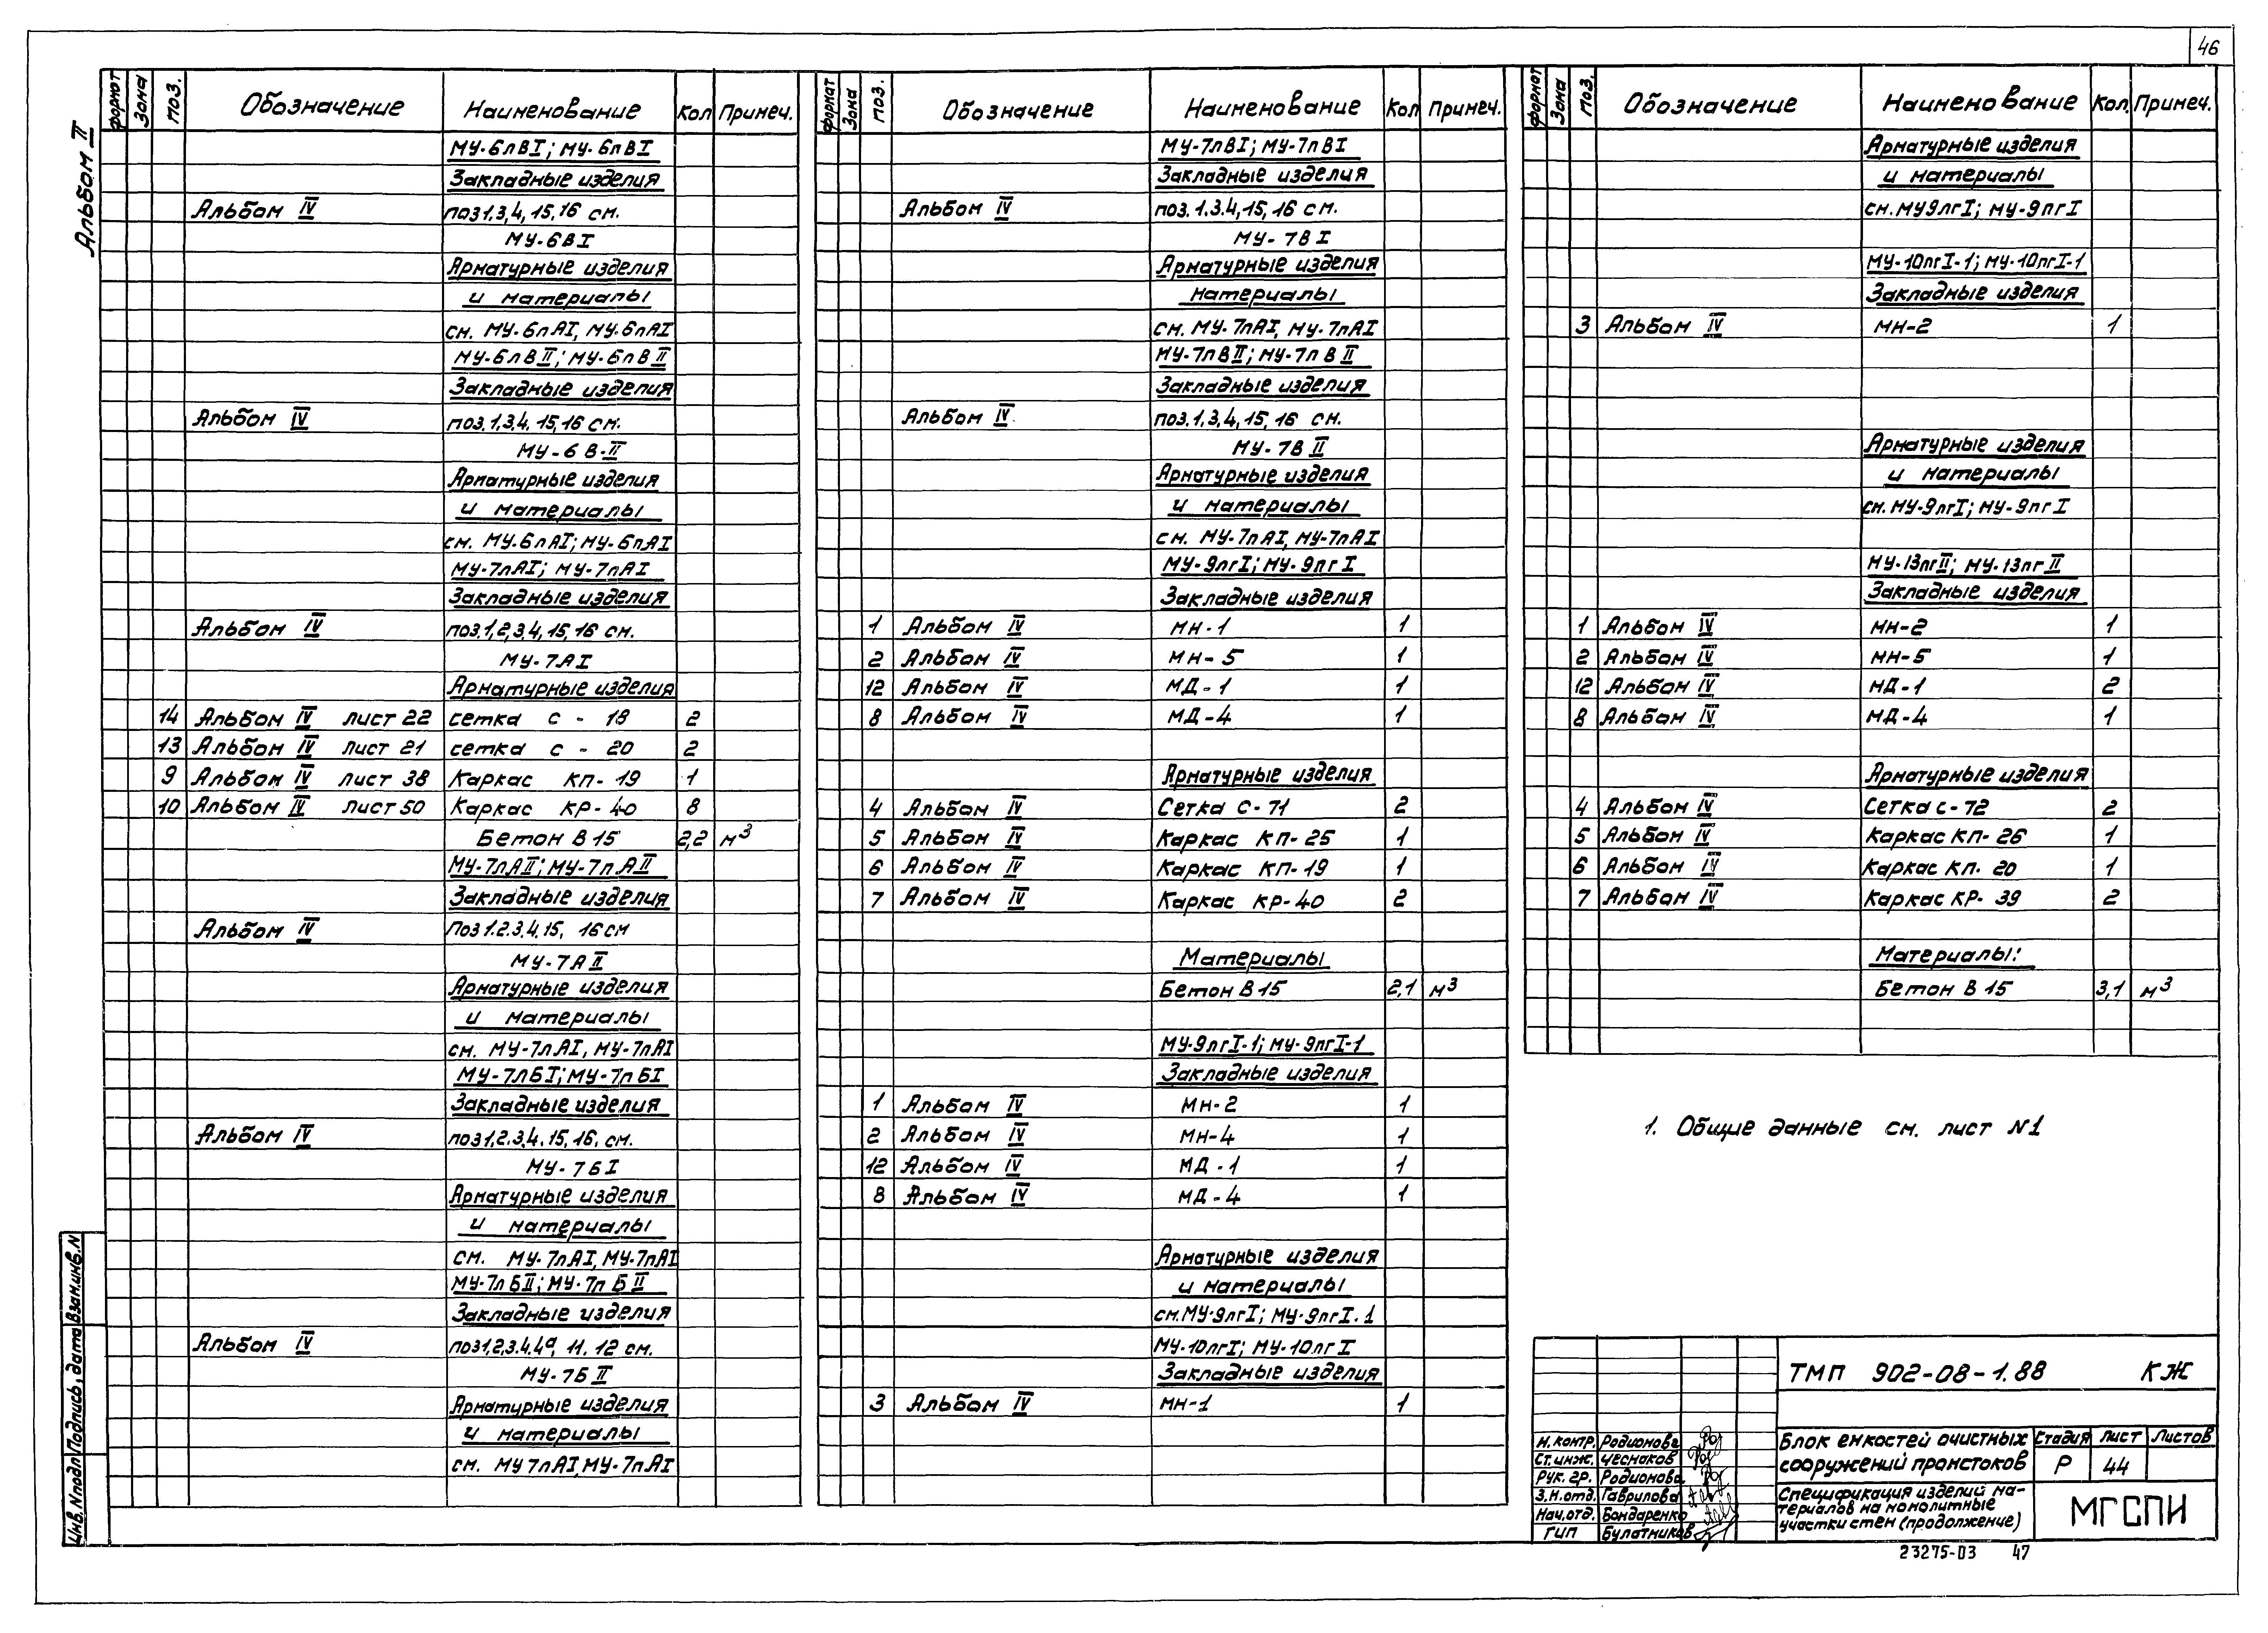 46
Альбом II
формат Зона поз. Обозначение Наименование Кол Примеч.
МУ-6лВI; МУ-6пВI
Закладные изделия
Альбом IV поз 1,3,4,15,16 см.
МУ-6ВI
Арматурные изделия
и материалы
см. МУ-6лАI, МУ-6пАI
МУ-6лВII; МУ-6пВII
Закладные изделия
Альбом IV поз. 1,3,4, 15,16 см.
МУ-6 В-II
Арматурные изделия
и материалы
см. МУ-6лАI; МУ-6пАI
МУ-7лАI; МУ-7пАI
Закладные изделия
Альбом IV поз.1,2,3,4,15,16 см.
МУ-7АI
Арматурные изделия
14 Альбом IV лист 22 сетка с - 18 2
13 Альбом IV лист 21 сетка с - 20 2
9 Альбом IV лист 38 Каркас КП-19 1
10 Альбом IV лист 50 Каркас КР-40 8
Бетон В 15 2,2 м³
МУ-7лАII; МУ-7пАII
Закладные изделия
Альбом IV Поз 1.2.3.4.15, 16 см
МУ-7АII
Арматурные изделия
и материалы
см. МУ-7лАI, МУ-7пАI
МУ-7лБI; МУ-7пБI
Закладные изделия
Альбом IV поз 1,2.3.4.15,16. см.
МУ-7БI
Арматурные изделия
и материалы
см. МУ-7лАI, МУ-7пАI
МУ-7лБII; МУ-7пБII
Закладные изделия
Альбом IV поз 1,2,3,4,4а, 11, 12 см.
МУ-7БII
Арматурные изделия
и материалы
см. МУ 7лАI, МУ-7пАI
формат Зона поз. Обозначение Наименование Кол Примеч.
МУ-7лВI; МУ-7пВI
Закладные изделия
Альбом IV поз. 1.3.4,15,16 см.
МУ-7ВI
Арматурные изделия
материалы
см. МУ-7лАI, МУ-7пАI
МУ-7лВII; МУ-7пВII
Закладные изделия
Альбом IV поз.1,3,4,15, 16 см.
МУ-7ВII
Арматурные изделия
и материалы
см. МУ-7лАI, МУ-7пАI
МУ-9лгI; МУ-9пгI
Закладные изделия
1 Альбом IV МН-1 1
2 Альбом IV МН-5 1
12 Альбом IV МД-1 1
8 Альбом IV МД-4 1
Арматурные изделия
4 Альбом IV Сетка С-71 2
5 Альбом IV Каркас КП-25 1
6 Альбом IV Каркас КП-19 1
7 Альбом IV Каркас КР-40 2
Материалы
Бетон В 15 2,1 м³
МУ-9лгI-1; МУ-9пгI-1
Закладные изделия
1 Альбом IV МН-2 1
2 Альбом IV МН-4 1
12 Альбом IV МД-1 1
8 Альбом IV МД-4 1
Арматурные изделия
и материалы
см. МУ-9лгI; МУ-9пгI.1
МУ-10лгI; МУ-10пгI
Закладные изделия
3 Альбом IV МН-1 1
формат Зона поз. Обозначение Наименование Кол. Примеч.
Арматурные изделия
и материалы
см. МУ9лгI; МУ-9пгI
МУ-10лгI-1; МУ-10пгI-1
Закладные изделия
3 Альбом IV МН-2 1
Арматурные изделия
и материалы
см. МУ-9лгI; МУ-9пгI
МУ-13лгII; МУ-13пгII
Закладные изделия
1 Альбом IV МН-2 1
2 Альбом IV МН-5 1
12 Альбом IV МД-1 2
8 Альбом IV МД-4 1
Арматурные изделия
4 Альбом IV Сетка С-72 2
5 Альбом IV Каркас КП-26 1
6 Альбом IV Каркас КП. 20 1
7 Альбом IV Каркас КР- 39 2
Материалы:
Бетон В 15 3,1 м³
1. Общие данные см. лист N1
Инв. N подл Подпись, дата Взам.инв.N
ТМП 902-08-1.88 КЖ
Н.контр. Родионова
Ст.инж. Чесноков
Рук. гр. Родионова
З.Н.отд. Гаврилова
Нач.отд. Бондаренко
ГИП Булатников
Блок емкостей очистных
сооружений промстоков
Стадия Лист Листов
Р 44
Спецификация изделий ма-
териалов на монолитные
участки стен (продолжение)
МГСПИ
23275-03 47